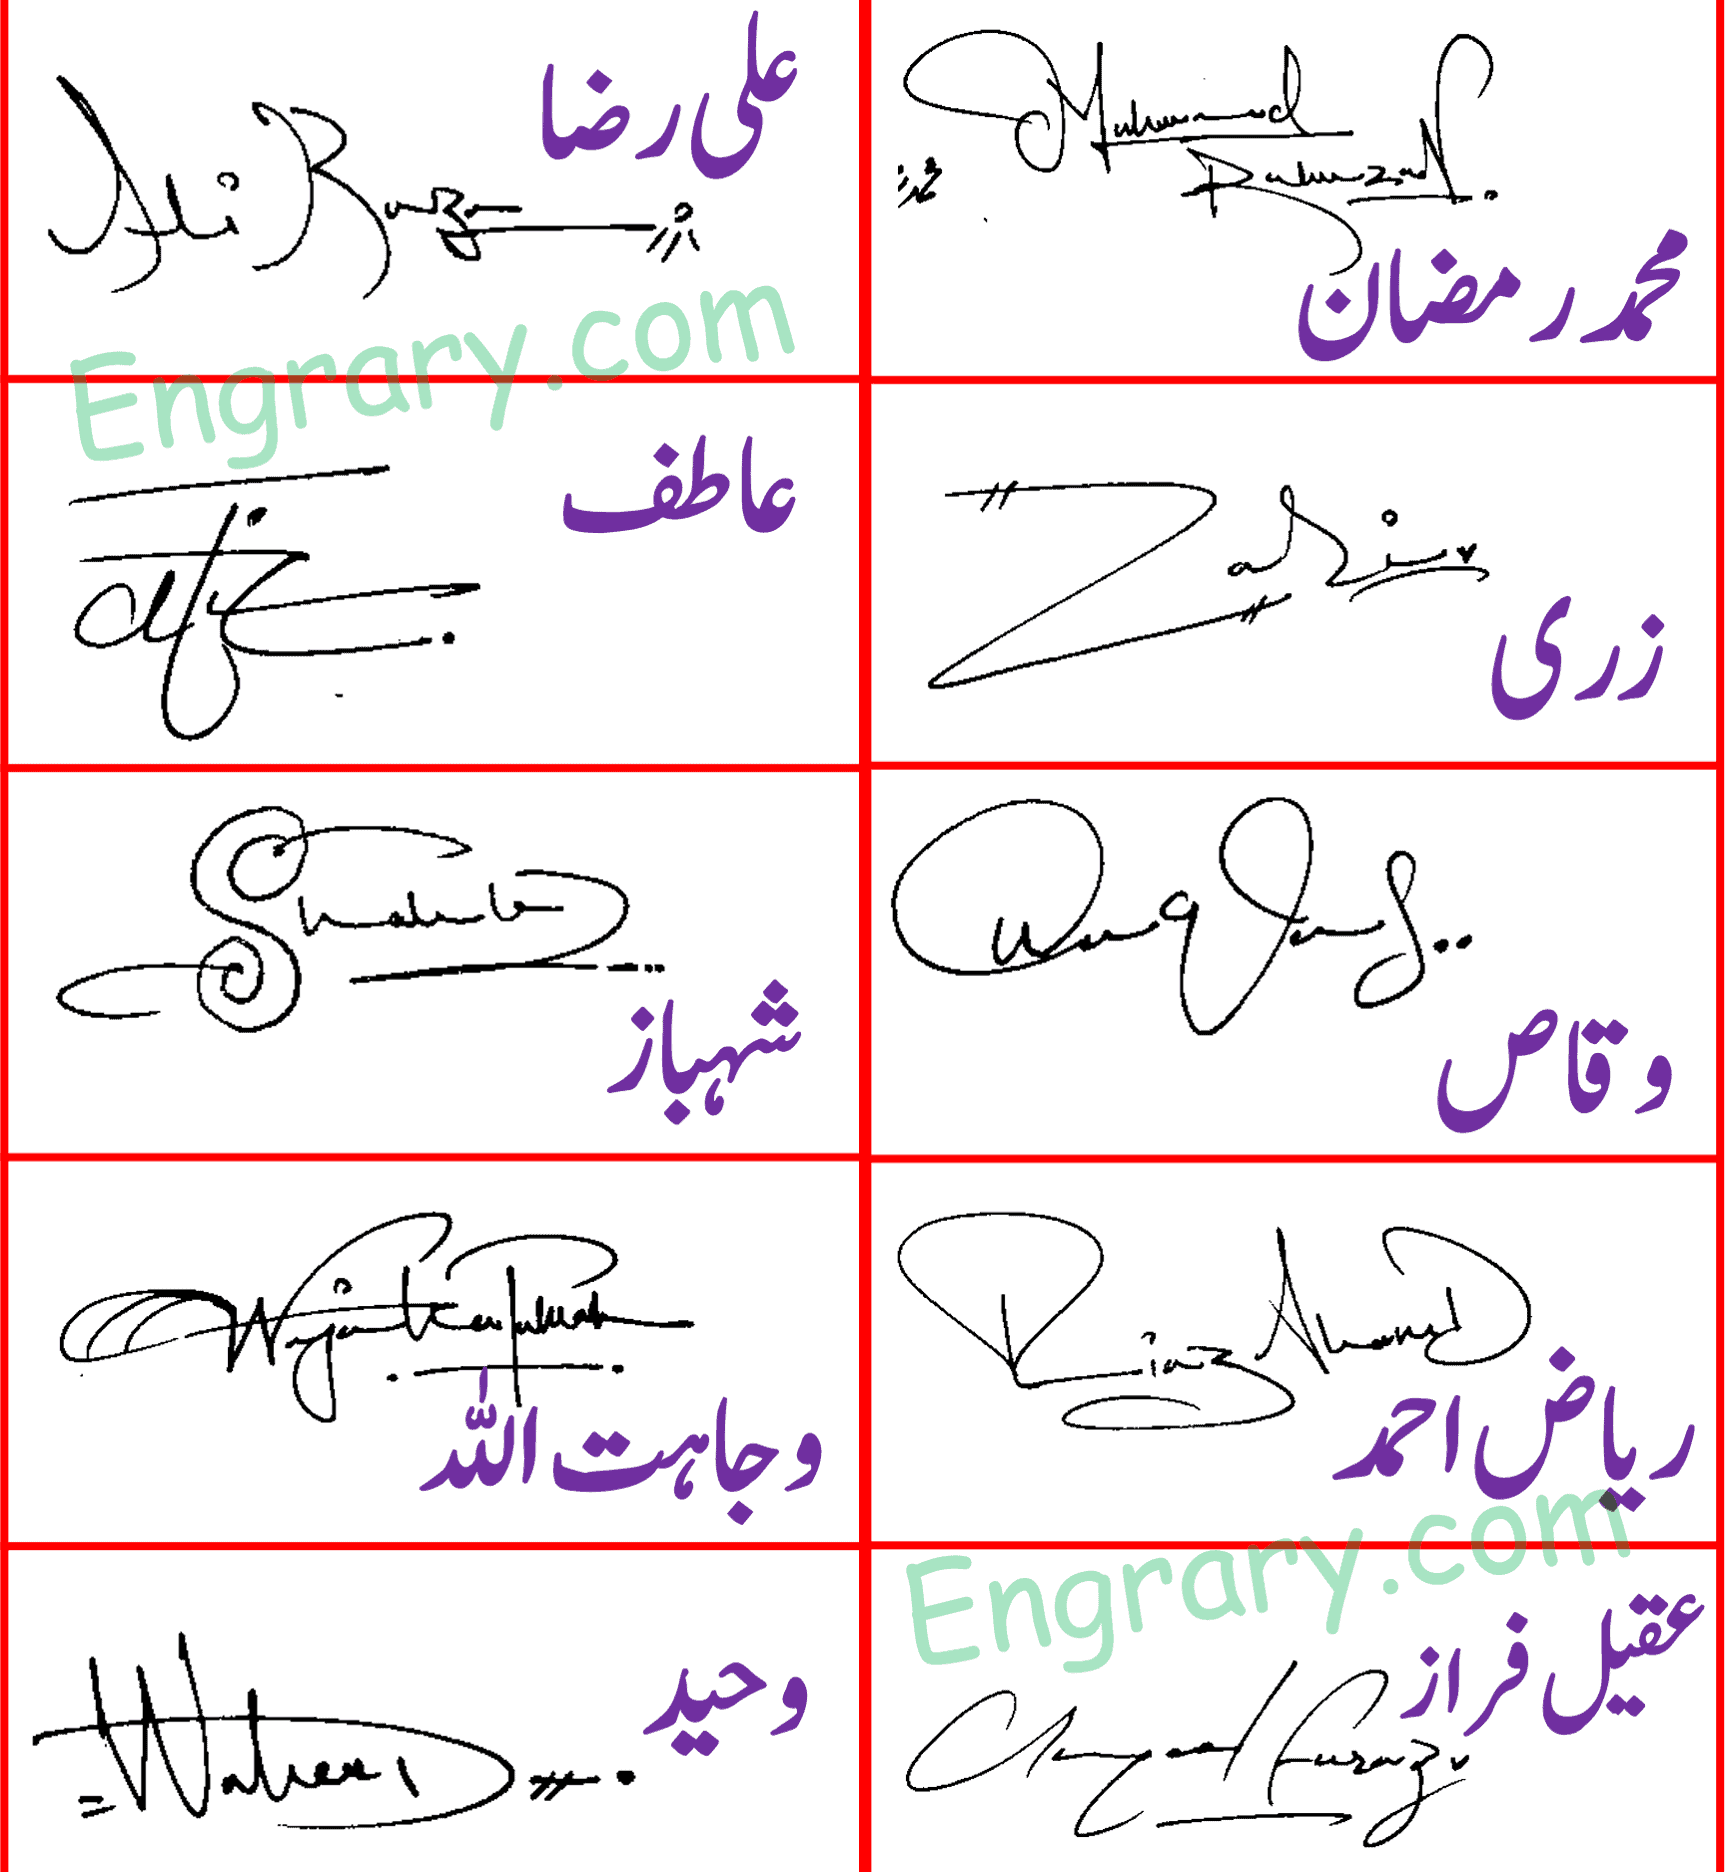 علی رضا
Ali Raza
Muhammad
Ramzan
محمد رمضان
Engrary.com
عاطف
Atif
Zari
زری
Shahbaz
شہباز
Waqas
وقاص
Wajahat Ullah
وجاہت اللہ
Riaz Ahmad
ریاض احمد
Engrary.com
Waheed
وحید
عقیل فراز
Aqeel Faraz